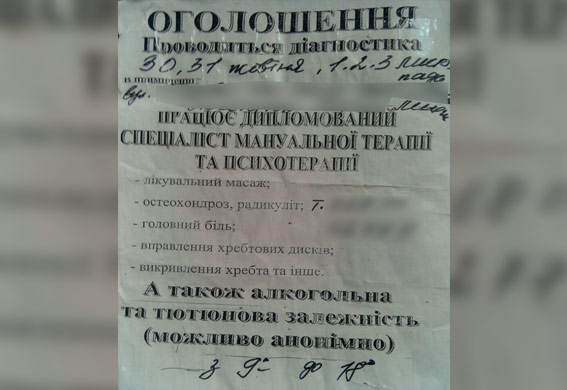 ОГОЛОШЕННЯ
Проводиться діагностика
30, 31 жовтня, 1.2.3 листо
пада
в приміщенні
вул.
ПРАЦЮЄ ДИПЛОМОВАНИЙ
СПЕЦІАЛІСТ МАНУАЛЬНОЇ ТЕРАПІЇ
ТА ПСИХОТЕРАПІЇ
- лікувальний масаж;
- остеохондроз, радикуліт; т.
- головний біль;
- вправлення хребтових дисків;
- викривлення хребта та інше.
А також алкогольна
та тютюнова залежність
(можливо анонімно)
з 9⁰⁰ до